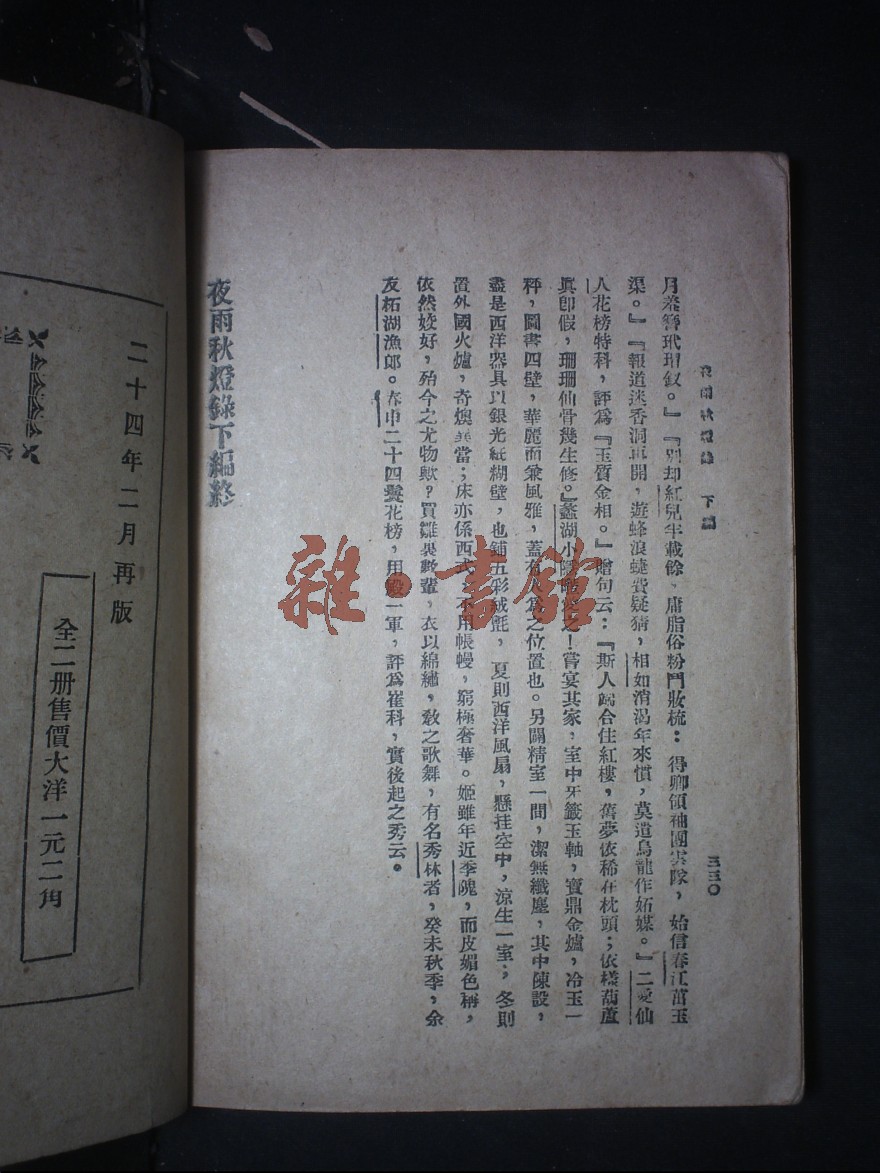 夜雨秋燈錄 下編
三三〇
月差簪玳瑁釵。』『別却紅兒半載餘，庸脂俗粉鬥妝梳：得卿領袖團雲隊，始信春江茁玉
渠。』『報道迷香洞再開，遊蜂浪蜨費疑猜，相如消渴年來慣，莫遣烏龍作妬媒。』二愛仙
人花榜特科，評爲『玉質金相。』贈句云：『斯人端合住紅樓，舊夢依稀在枕頭；依樣葫蘆
眞卽假，珊珊仙骨幾生修。』蠡湖小隱 之！嘗宴其家，室中牙籤玉軸，寶鼎金爐，冷玉一
枰，圖書四壁，華麗而兼風雅，蓋有人爲之位置也。另闢精室一間，潔無纖塵，其中陳設，
盡是西洋器具以銀光紙糊壁，也鋪五彩絨氈，夏則西洋風扇，懸挂空中，涼生一室；冬則
置外國火爐，奇燠異當；床亦係西式，不用帳幔，窮極奢華。姬雖年近季隗，而皮媚色稱，
依然姣好，殆今之尤物歟？買雛鬟數輩，衣以綿繡，敎之歌舞，有名秀林者，癸未秋季，余
友柘湖漁郎。春申二十四鬟花榜，用殿一軍，評爲崔科，實後起之秀云。
夜雨秋燈錄下編終
二十四年二月再版
全二册售價大洋一元二角
雜·書館